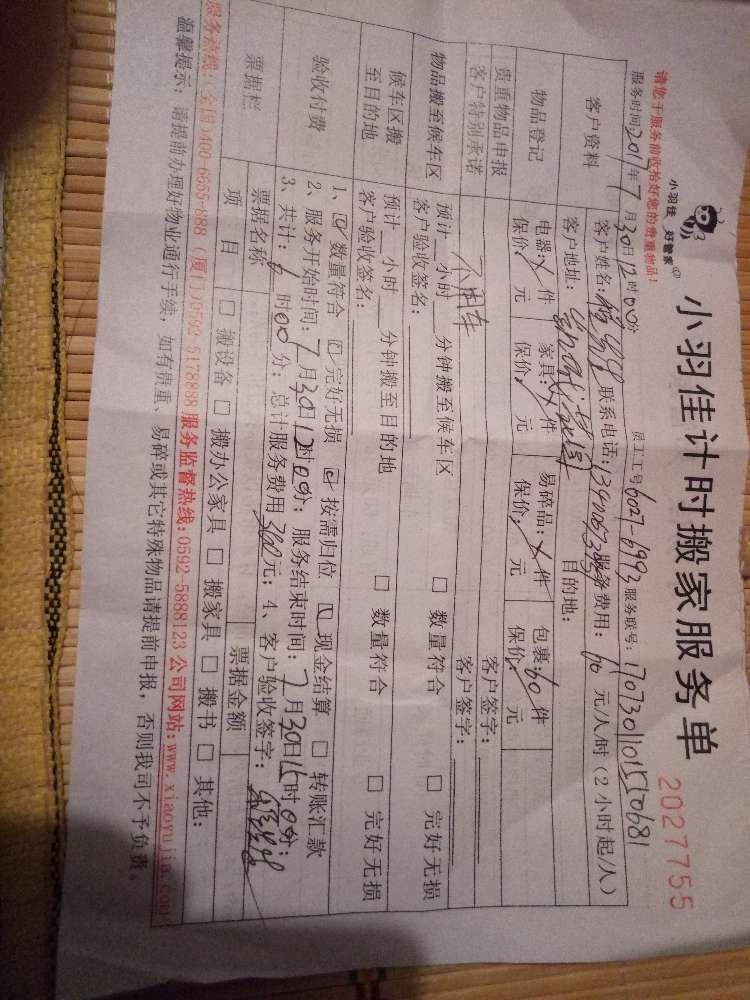 小羽佳 好管家
小羽佳计时搬家服务单
2027755
请您于服务前收拾好您的贵重物品！
服务时间2017年7月30日12时00分 员工工号6027-6993 服务联号:
客户资料 客户姓名: 联系电话: 服务费用: 60 元/人/时（2小时起/人）
客户地址: 目的地:
物品登记 电器: 件 家具: 件 易碎品: 件 包裹: 60 件
保价: 元 保价: 元 保价: 元 保价: 元
贵重物品申报 客户签字:
客户特别承诺 不跟车 客户签字:
物品搬至候车区 预计 小时 分钟搬至候车区 □ 数量符合 □ 完好无损
客户验收签名:
候车区搬至目的地 预计 小时 分钟搬至目的地 □ 数量符合 □ 完好无损
客户验收签名:
验收付费 1、☑ 数量符合 ☑ 完好无损 ☑ 按需归位 ☑ 现金结算 □ 转账汇款
2、服务开始时间: 7月30日12时00分; 服务结束时间: 7月30日15时00分;
3、共计: 6时00分; 总计服务费用 360元; 4、客户验收签字:
票据栏 票据名称 票据金额
项目 □ 搬设备 □ 搬办公家具 □ 搬家具 □ 搬书 □ 其他:
服务热线:(全国)400-6655-888 (厦门)0592-5178888 服务监督热线:0592-5888123 公司网站:www.xiaoyujia.com
温馨提示: 请提前办理好物业通行手续，如有贵重、易碎或其它特殊物品请提前申报，否则我司不予负责。